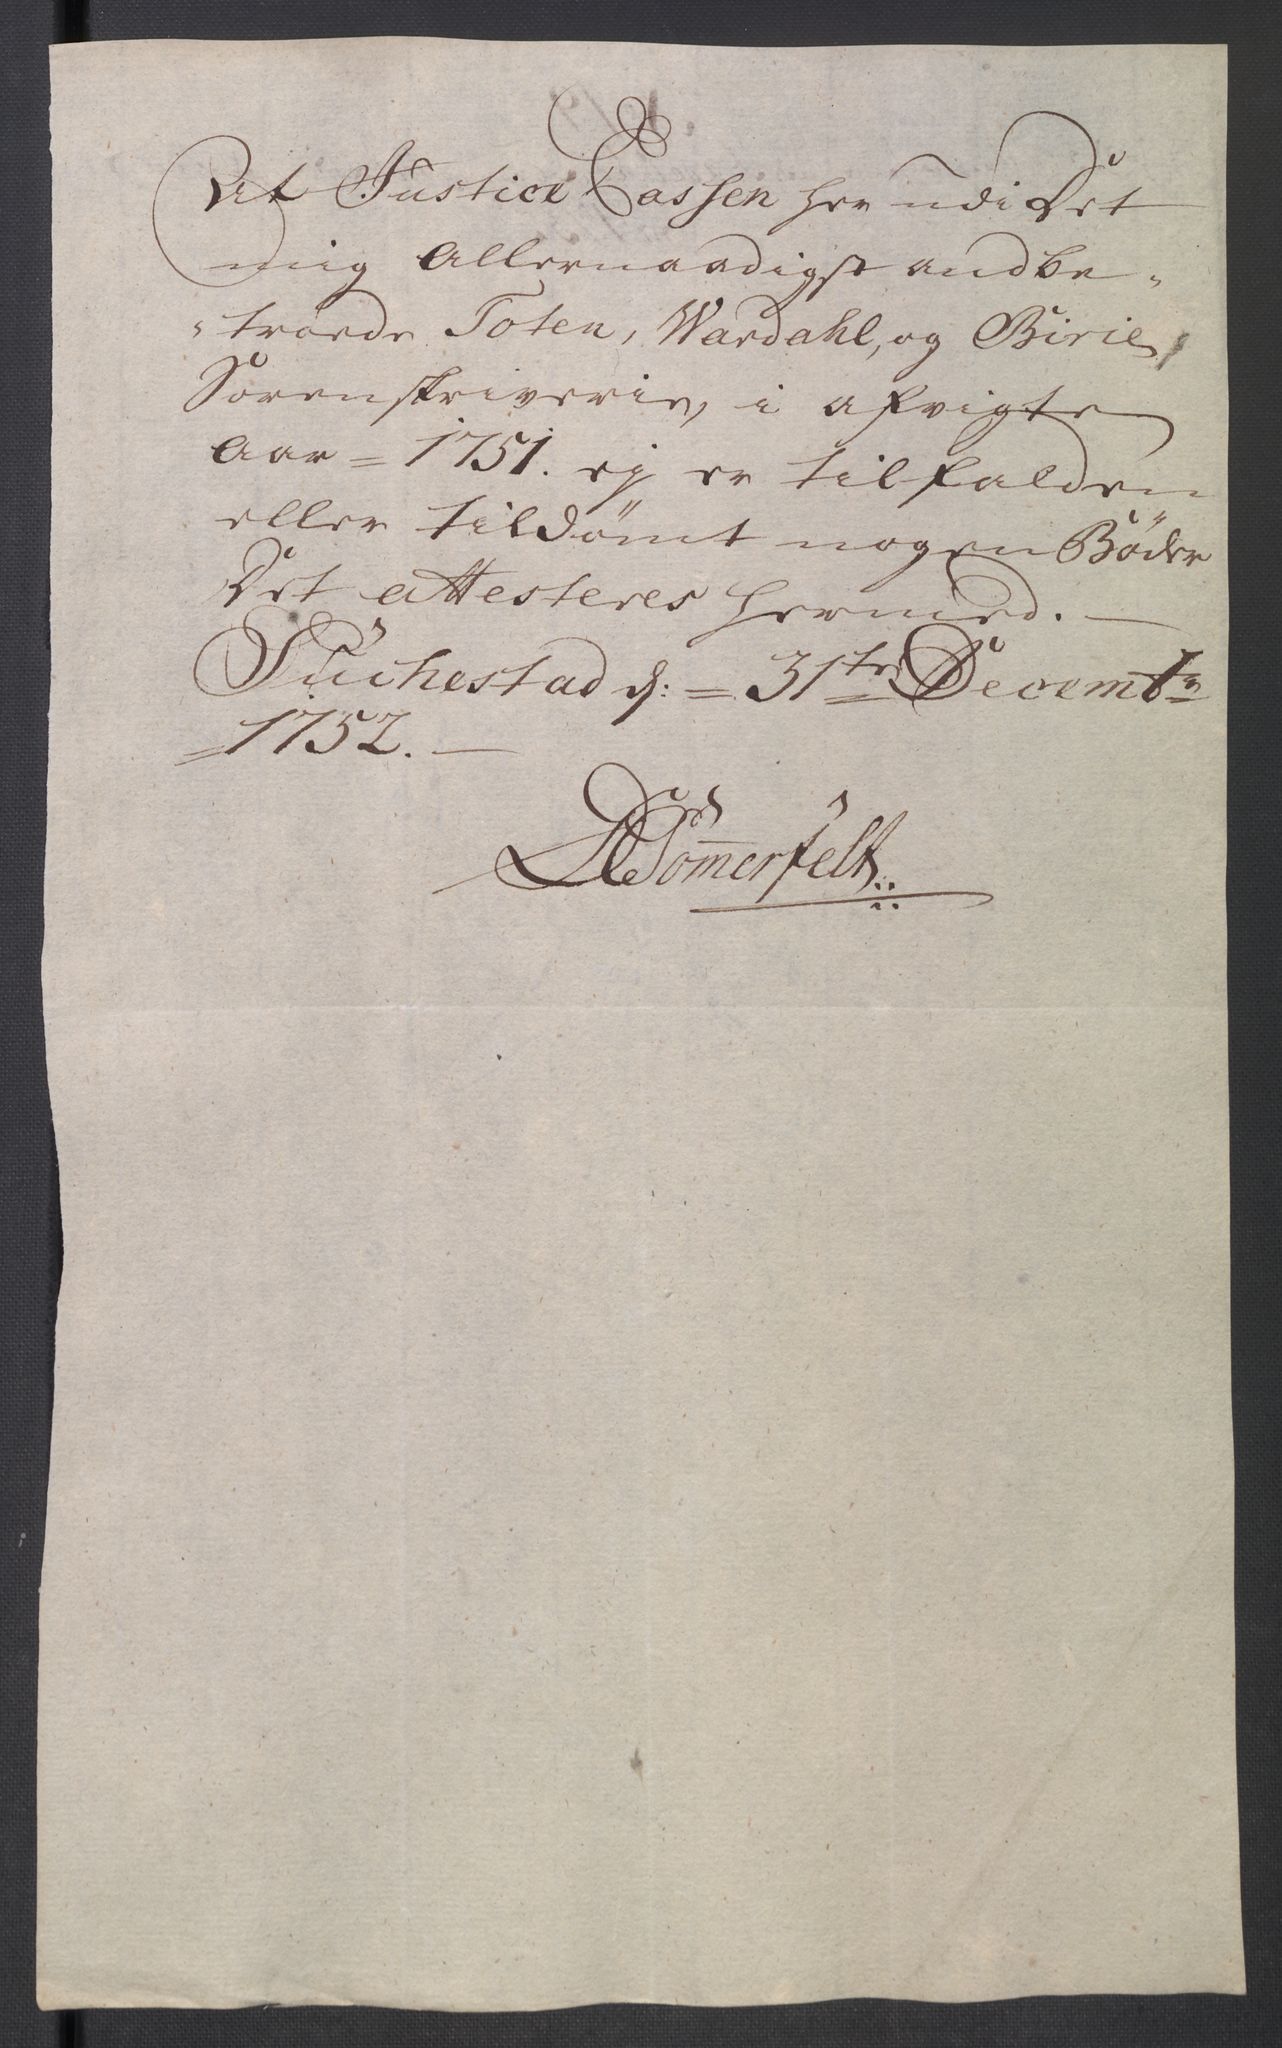 At Justice Cassen her udi Det
mig Allernaadigst andbe-
-troede Toten, Wardahl, og Birie
Sorenskriverie, i afvigte
Aar = 1751. ej er tilfalden
eller tildömt nogen Böder
Det attesteres hermed. —
Sückestad d: = 31te Decembr
= 1752. —
Sömerfelt